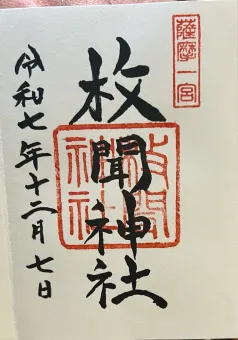 薩摩一宮
枚聞神社
枚聞神社
令和七年十二月七日